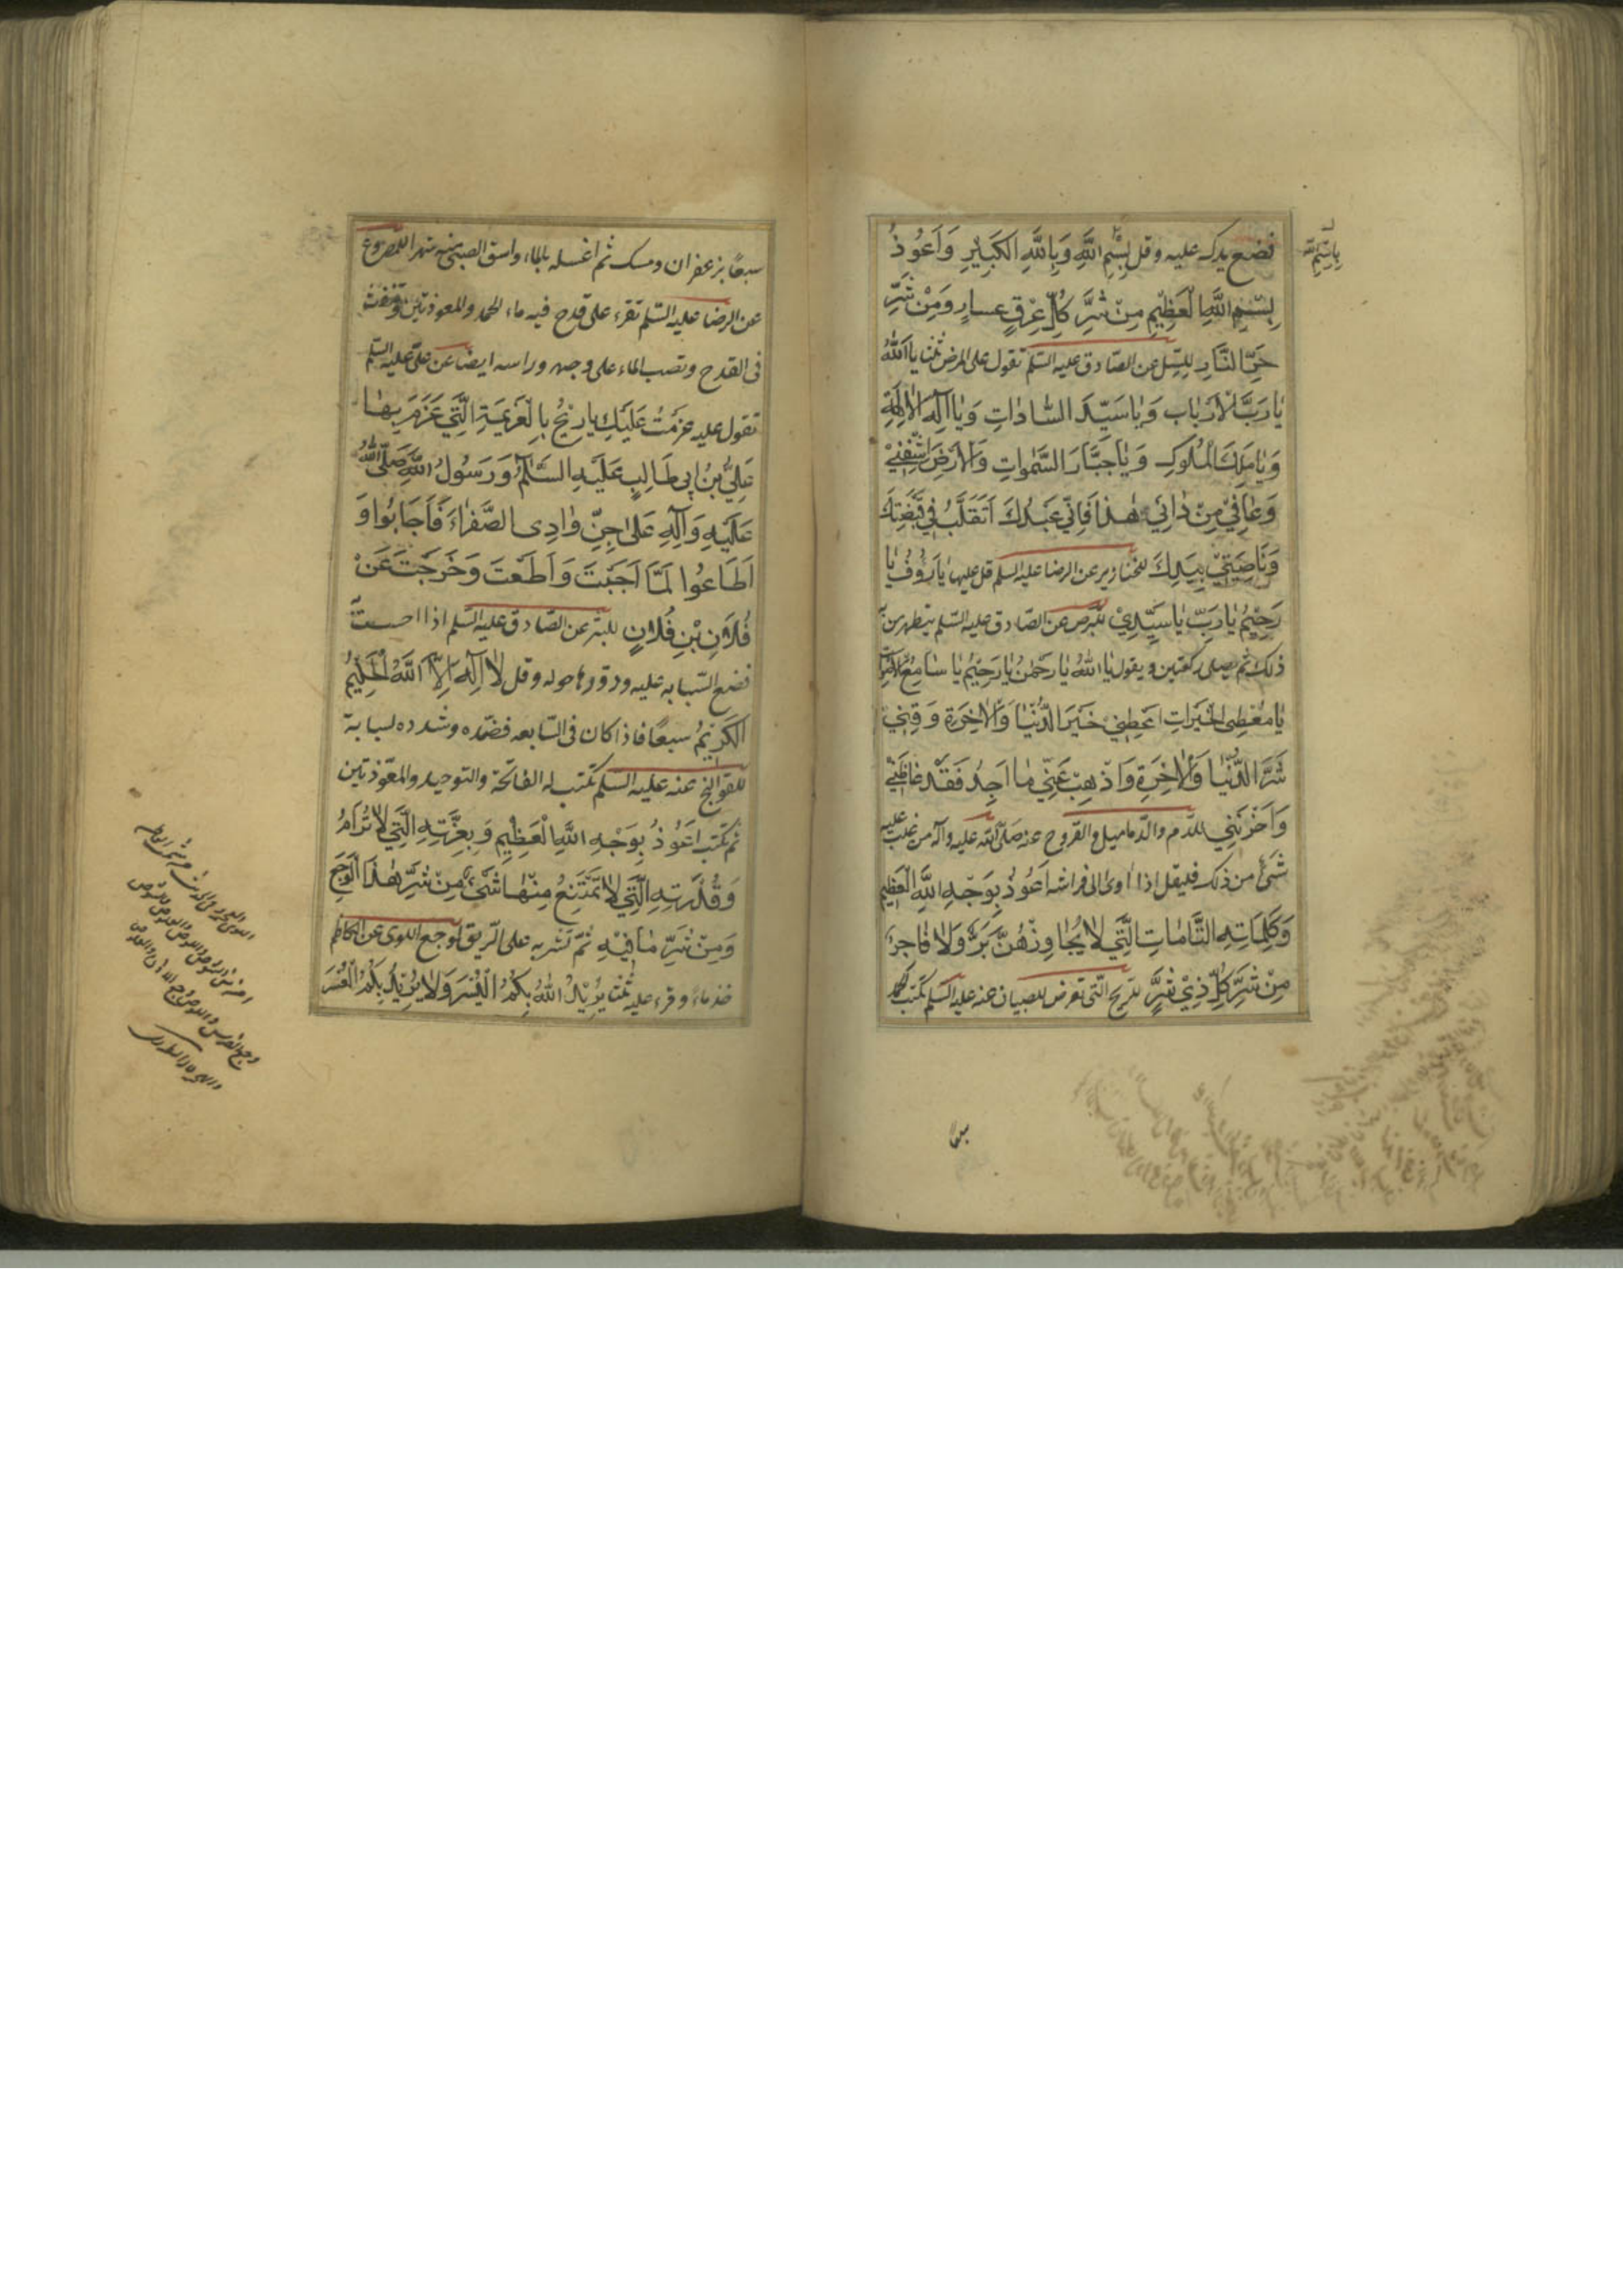 فضع يدك عليه و قل بِسْمِ اللهِ وَبِاللهِ الكَبِيْرِ وَاَعُوذُ
بِسْمِ اللهِ الْعَظِيْمِ مِنْ شَرِّ كُلِّ عِرْقٍ وَمِنْ شَرِّ
حَرِّ النَّارِ للسّل عن الصّادق عليه السّلم تقول على المرض ثلثا يا اَللهُ
يا رَبَّ الْاَرْبابِ وَيا سَيِّدَ السّاداتِ وَيا اِلهَ الْالِهَةِ
وَيا مَلِكَ الْمُلُوكِ وَيا جَبَّارَ السَّمواتِ وَالْاَرْضِ اشْفِنِيْ
وَعافِنِيْ مِنْ دائِيْ هذا فَاِنِّيْ عَبْدُكَ اَتَقَلَّبُ فِيْ قَبْضَتِكَ
وَناصِيَتِيْ بِيَدِكَ للخنازير عن الرضا عليه السلم قل عليها يا رَؤُفُ يا
رَحِيْمُ يا رَبِّ يا سَيِّدِيْ للبرص عن الصّادق عليه السّلم يتطهر من
ذلك ثم يصلى ركعتين و يقول يا اَللهُ يا رَحْمنُ يا رَحِيْمُ يا سامِعَ الْاَصْواتِ
يا مُعْطِيَ الْخَيْراتِ اَعْطِنِيْ خَيْرَ الدُّنْيا وَالْاخِرَةِ وَقِنِيْ
شَرَّ الدُّنْيا وَالْاخِرَةِ وَاَذْهِبْ عَنِّيْ ما اَجِدُ فَقَدْ غاظَنِيْ
وَاَحْزَنَنِيْ للدّم والدّماميل والقروح عنه صلّى الله عليه وآله من غلب عليه
شئ من ذلك فليقل اذا اوى الى فراشه اَعُوذُ بِوَجْهِ اللهِ الْعَظِيْمِ
وَكَلِماتِهِ التّامّاتِ الَّتِيْ لا يُجاوِزُهُنَّ بَرٌّ وَلا فاجِرٌ
مِنْ شَرِّ كُلِّ ذِيْ شَرٍّ للريح التى تعرض للصبيان عنه عليه السّلم تكتب الحمد
بِاسْمِ اللهِ
سبعا
سبعًا بزعفران ومسك ثم اغسله بالماء واسق الصبى منه شهرا للمصروع
عن الرضا عليه السّلم تقرء على قدح فيه ماء الحمد والمعوذتين وتنفث
فى القدح وتصب الماء على وجهه وراسه ايضا عن على عليه السّلم
تقول عليه عَزَمْتُ عَلَيْكِ يا رِيْحُ بِالْعَزِيْمَةِ الَّتِيْ عَزَمَ بِها
عَلِيُّ بْنُ اَبِيْ طالِبٍ عَلَيْهِ السَّلمُ وَرَسُولُ اللهِ صَلَّى اللهُ
عَلَيْهِ وَآلِهِ عَلى جِنِّ وادِى الصَّفْراءِ فَاَجابُوا وَ
اَطاعُوا لَمّا اَجَبْتَ وَاَطَعْتَ وَخَرَجْتَ عَنْ
فُلانِ بْنِ فُلانٍ للبثر عن الصّادق عليه السّلم اذا احسست به
فضع السّبابه عليه ودوّر ما حوله وقل لا اِلهَ اِلَّا اللهُ الْحَلِيْمُ
الْكَرِيْمُ سبعًا فاذا كان فى السّابعه فضمده وشدده بالسبابة
للقولنج عنه عليه السّلم تكتب له الفاتحة والتوحيد والمعوّذتين
ثم تكتب اَعُوْذُ بِوَجْهِ اللهِ الْعَظِيْمِ وَبِعِزَّتِهِ الَّتِيْ لا تُرامُ
وَقُدْرَتِهِ الَّتِيْ لا يَمْتَنِعُ مِنْها شَيْءٌ مِنْ شَرِّ هذَا الْوَجَعِ
وَمِنْ شَرِّ ما فِيْهِ ثمّ تشربه على الرّيق لوجع اللوى عن الكاظم
خذ ماءً وقرء عليه ثلثا يُرِيْدُ اللهُ بِكُمُ الْيُسْرَ وَلا يُرِيْدُ بِكُمُ الْعُسْرَ